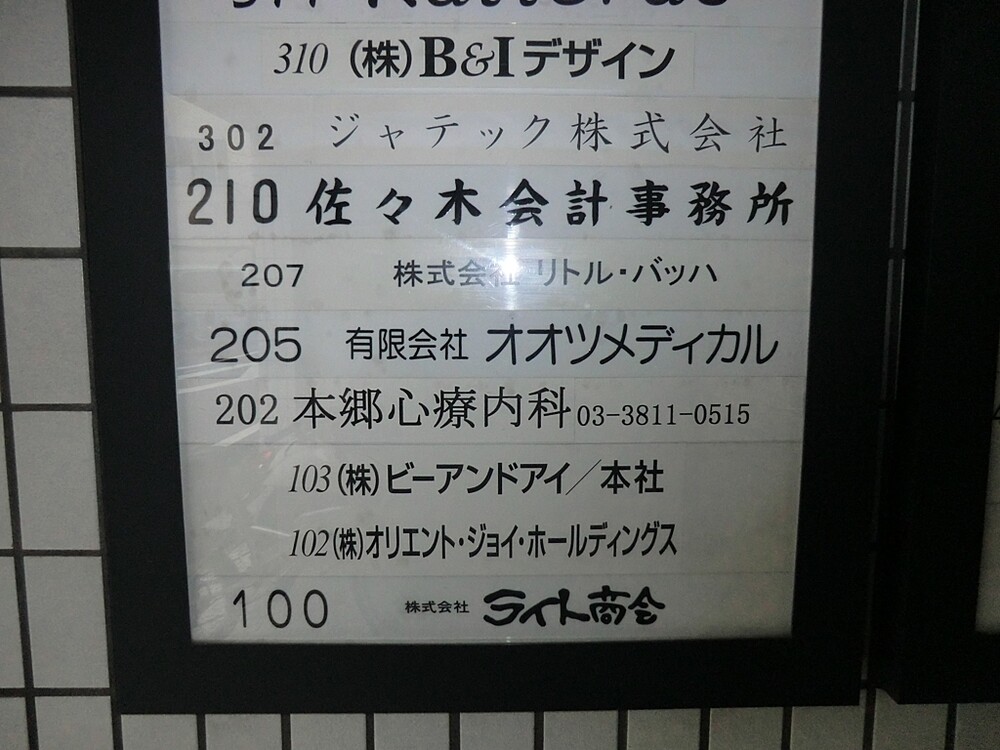 310 (株)B&Iデザイン
302 ジャテック株式会社
210 佐々木会計事務所
207 株式会社 リトル・バッハ
205 有限会社 オオツメディカル
202 本郷心療内科 03-3811-0515
103 (株)ビーアンドアイ／本社
102 (株)オリエント・ジョイ・ホールディングス
100 株式会社 ライト商会